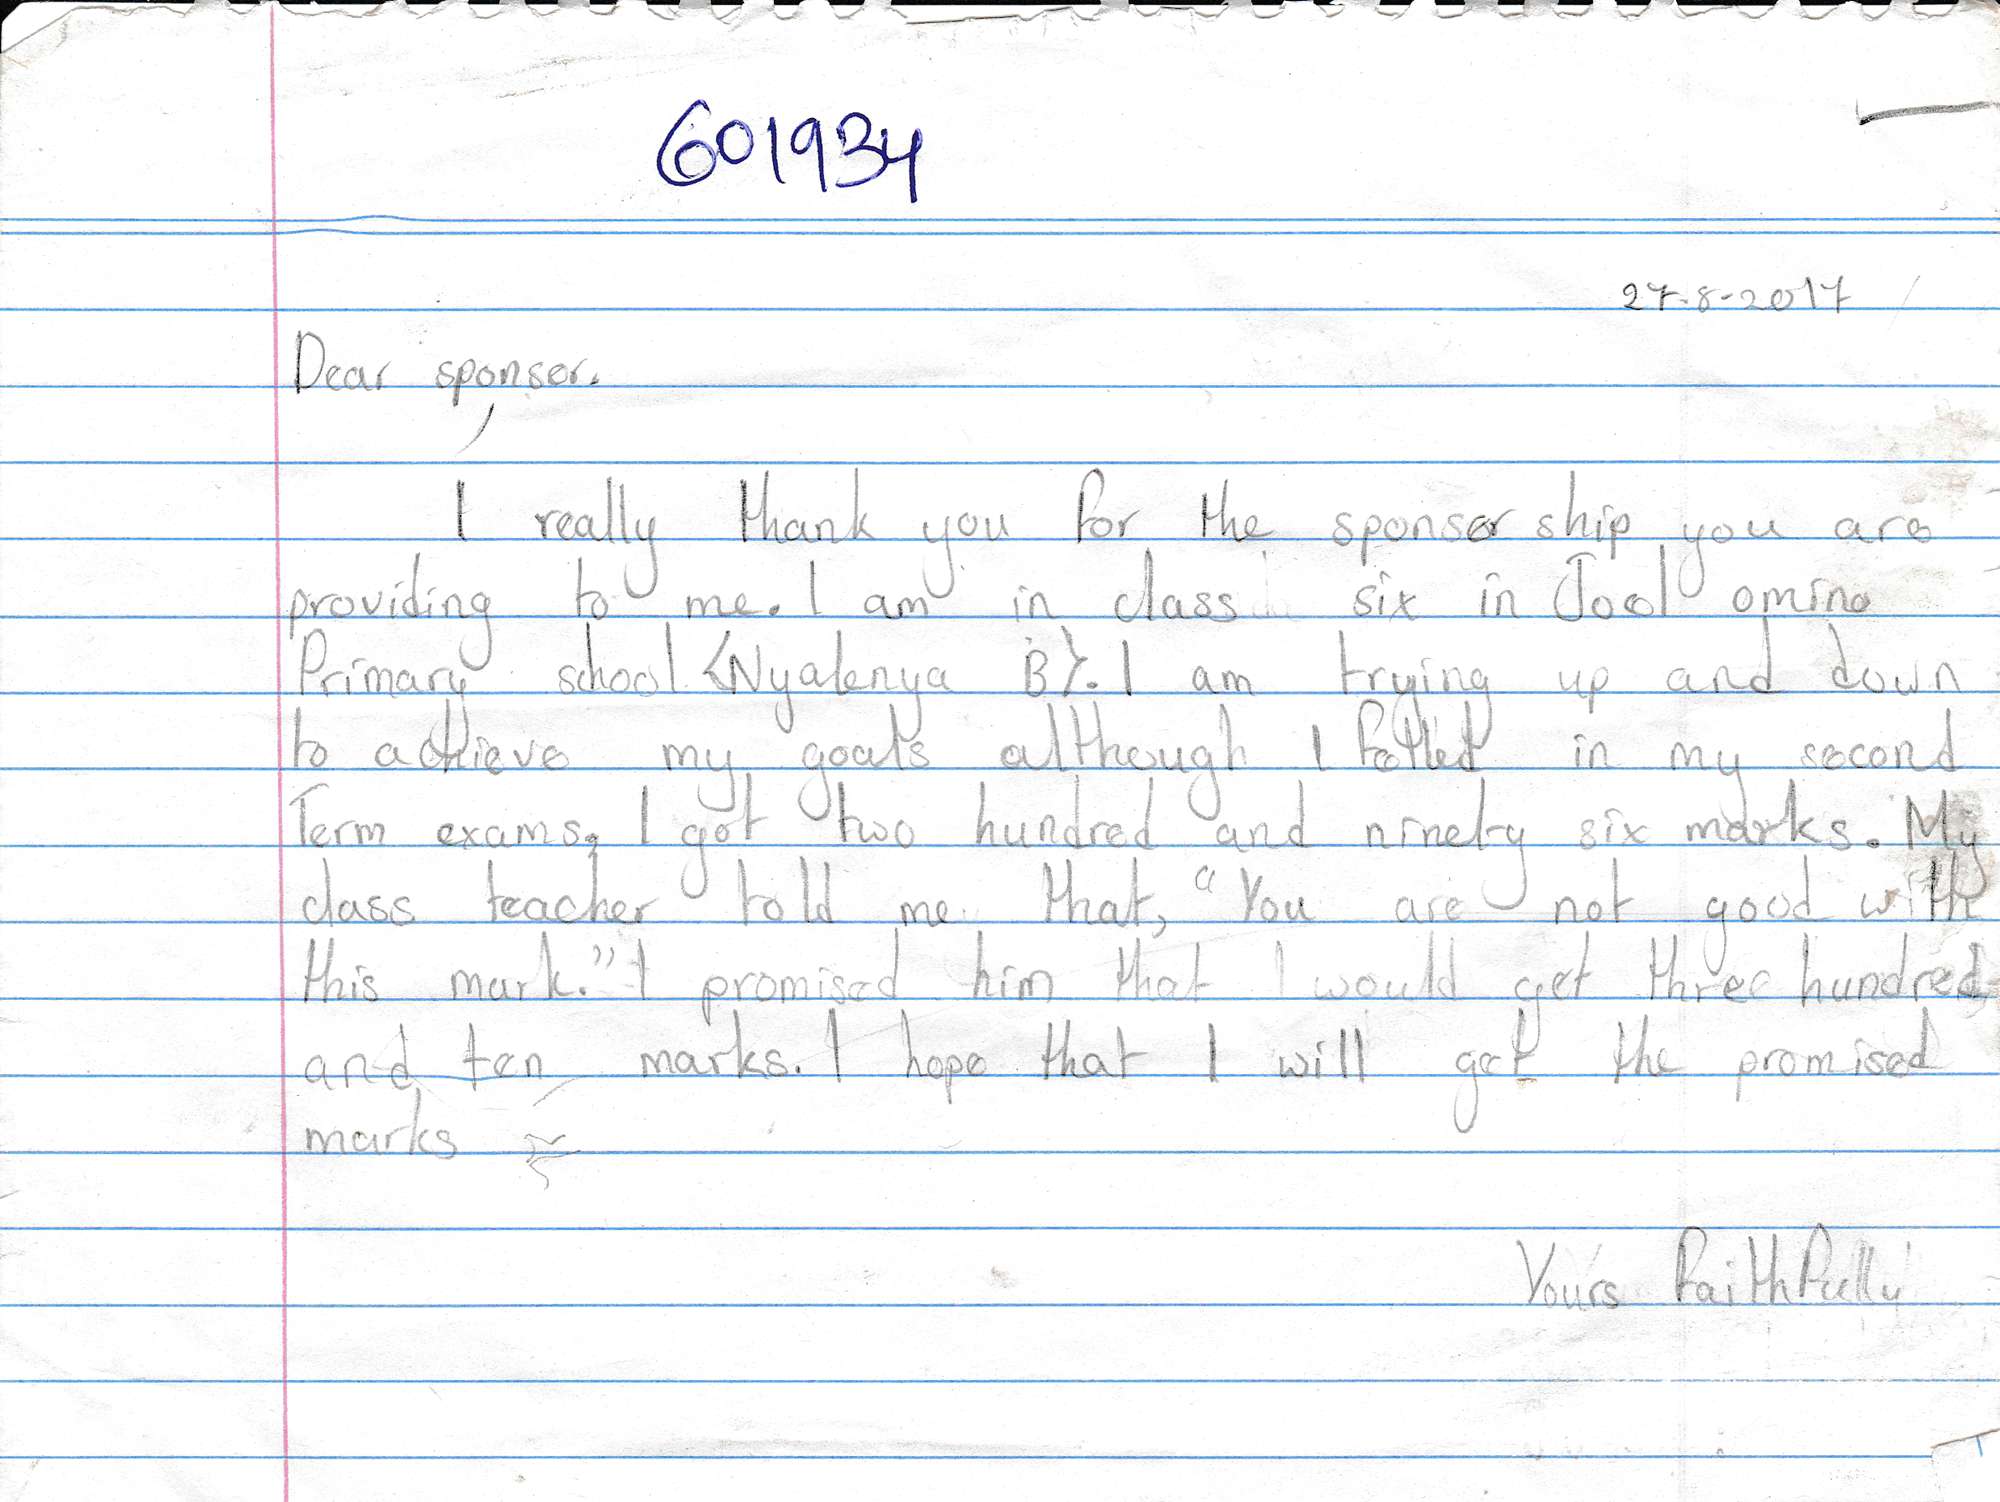 601934
27-8-2017
Dear sponsor.
I really thank you for the sponsor ship you are
providing to me. I am in class six in Jool omino
Primary school {Nyalenya B}. I am trying up and down
to achieve my goals although I failed in my second
Term exams. I got two hundred and ninety six marks. My
class teacher told me that, "You are not good with
this mark." I promised him that I would get three hundred
and ten marks. I hope that I will get the promised
marks
Yours faithfully